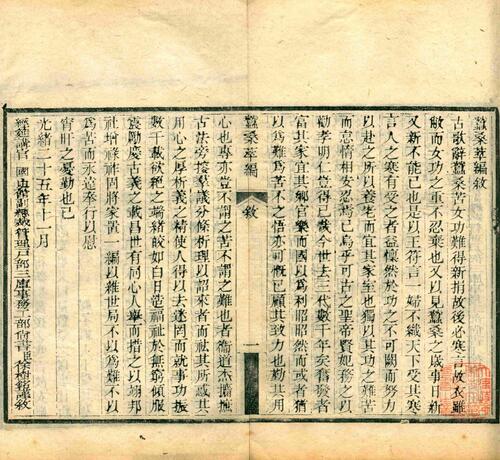 蠶桑萃編敘
古歌辭蠶桑苦女功難得新捐故後必寒言故衣雖
敝而女功之重不忍棄也又以見蠶桑之歲事日新
又新不能已也是以王符言一婦不織天下受其寒
言人之寒有受之者益懍然於功之不可闕而努力
以赴之所以養老而宜其家至也獨以其功之難苦
而怠情相女忍焉已烏乎可古之聖帝賢妃務之以
勸孝明仁登得已哉今世去三代數千年矣奮發者
富其家宜其鄉官樂而國以為利昭昭然而或者猶
以為難苦不之悟亦可慨已顧其致力也勤其用
蠶桑萃編 敘 一
心也專亦豈不謂之苦不謂之難也者衞道杰搢撫
古法旁搜羣議分條析理以詔來者而祛其所惑其
用心之厚析義之精使人得以去迷罔而就事功振
數千載欲絕之端緒皎如白日造福祉於無窮傾服
震勵慶古義之載昌世有同心人舉而措之以翊邦
社增祿祚固將家置一編以雜世局不以為難不以
為苦而永遠奉行以慰
宵旰之憂勤也已
光緒二十五年十一月
經筵講官 國史館副總裁管理戶部三庫事務工部尚書 徐樹銘謹敘